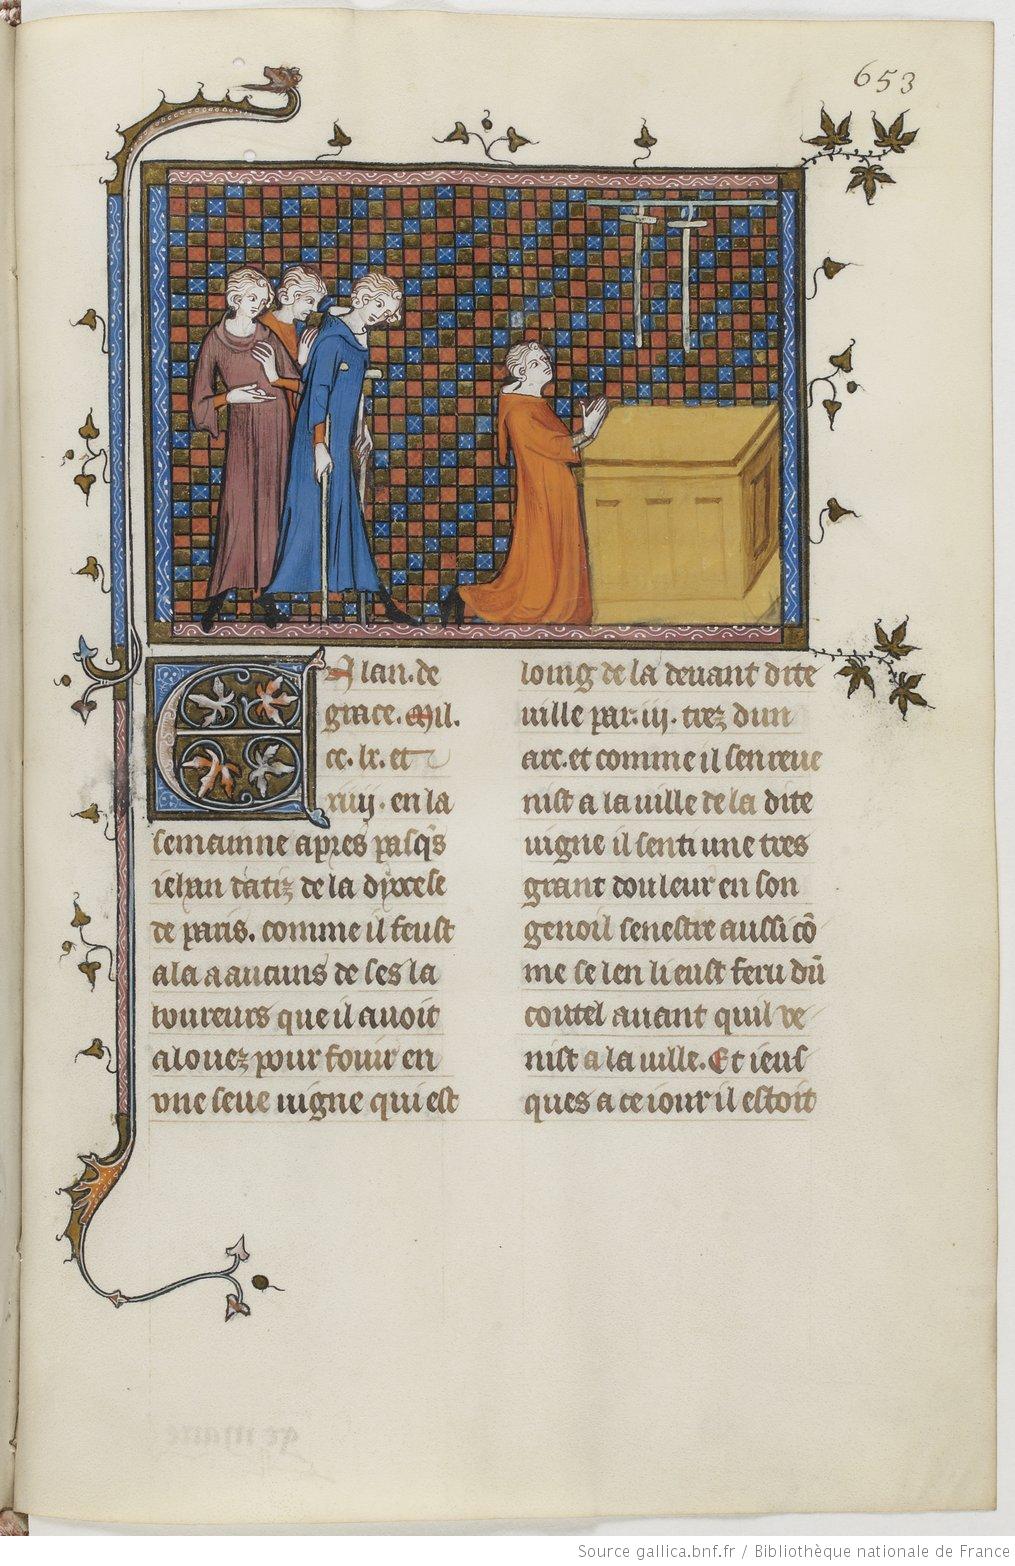 653
E
A lan. de
grace. Mil.
cc. lx. et
xiiij. en la
semainne apres pasqs
iehan datiz de la dyocese
de paris. comme il feust
ala a aucuns de ses la
boureurs que il auoit
alouez pour fouir en
vne seue uigne qui est
loing de la deuant dite
uille par. iij. trez dun
arc. et comme il sen reue
nist a la uille de la dite
uigne il senti une tres
grant douleur en son
genoil senestre aussi cō
me se len li eust feru dū
coutel auant quil ve
nist a la uille. Et ieus
ques a ce iour il estoit
Source gallica.bnf.fr / Bibliothèque nationale de France